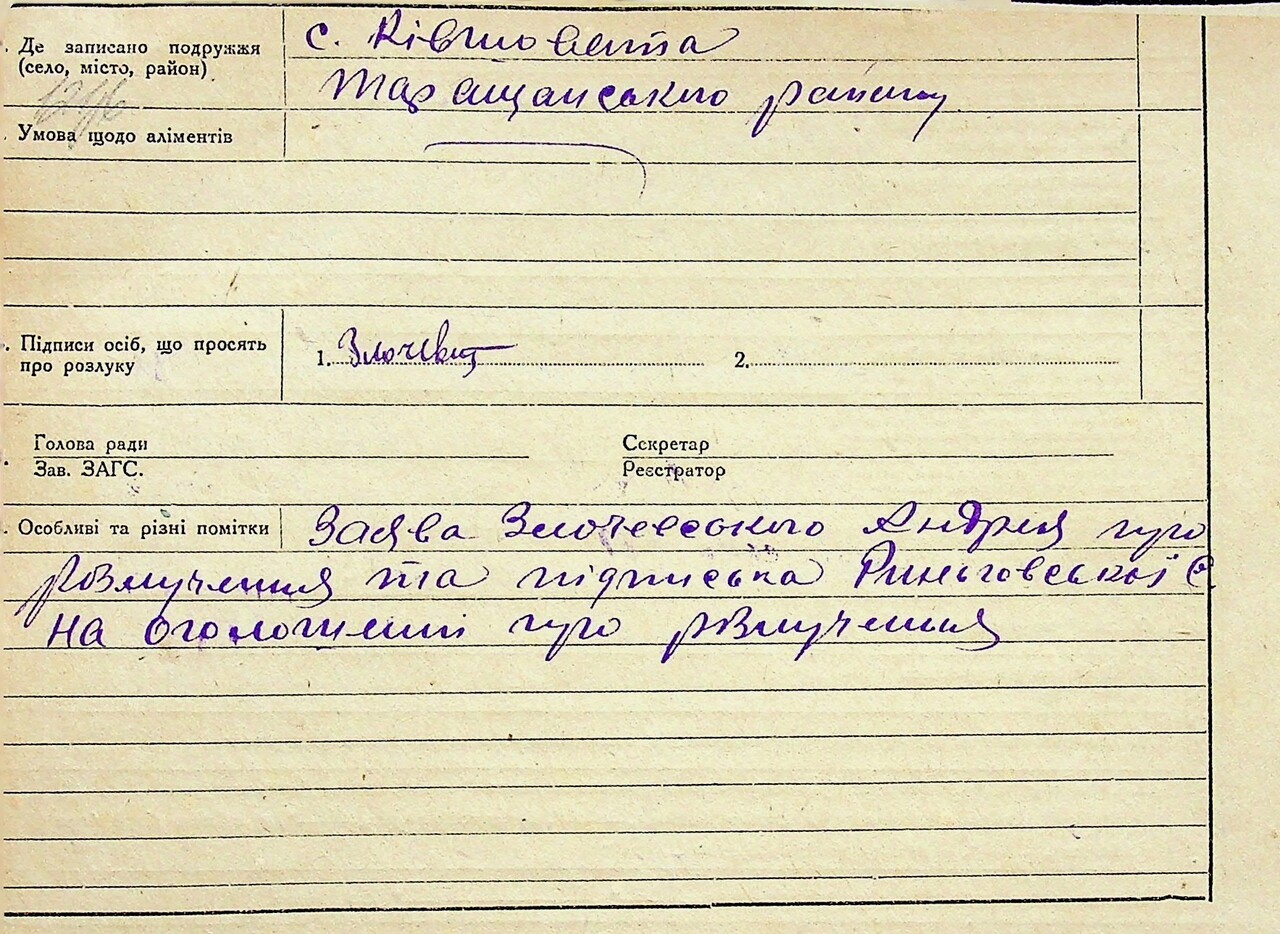 Де записано подружжя
(село, місто, район)
с. Ківшовата
Таращанського району
Умова щодо аліментів
Підписи осіб, що просять
про розлуку
1. Злочевс
2.
Голова ради
Зав. ЗАГС.
Секретар
Реєстратор
Особливі та різні помітки
Заява Злочевського Андрія про
розлучення та підписька Риньговської Є
на оголошенні про розлучення